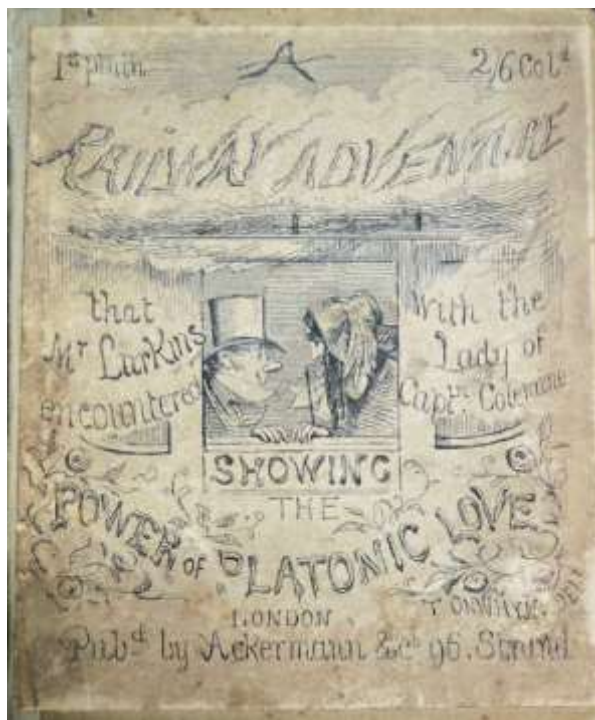 1s plain
2/6 Cold
RAILWAY ADVENTURE
that
Mr Larkins
encountered
With the
Lady of
Captn
SHOWING
THE
POWER OF PLATONIC LOVE
T ONWHYN
LONDON
Pubd by Ackermann & Co 96. Strand